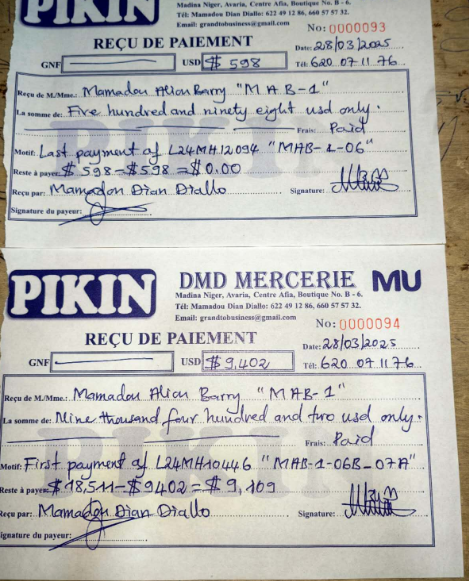 PIKIN
Madina Niger, Avaria, Centre Afia, Boutique No. B - 6.
Tél: Mamadou Dian Diallo: 622 49 12 86, 660 57 57 32.
Email: grandtobusiness@gmail.com
No: 0000093
REÇU DE PAIEMENT
Date: 28/03/2025
GNF USD $ 598 Tél: 620 07 11 76
Reçu de M./Mme.: Mamadou Aliou Barry "MAB-1"
La somme de: Five hundred and ninety eight usd only.
Frais: Paid
Motif: Last payment of L24MH12094 "MAB-1-06"
Reste à payer: $ 598 - $ 598 = $ 0.00
Reçu par: Mamadou Dian Diallo Signature:
Signature du payeur:
PIKIN
DMD MERCERIE MU
Madina Niger, Avaria, Centre Afia, Boutique No. B - 6.
Tél: Mamadou Dian Diallo: 622 49 12 86, 660 57 57 32.
Email: grandtobusiness@gmail.com
No: 0000094
REÇU DE PAIEMENT
Date: 28/03/2025
GNF USD $ 9,402 Tél: 620 07 11 76
Reçu de M./Mme.: Mamadou Aliou Barry "MAB-1"
La somme de: Nine thousand four hundred and two usd only.
Frais: Paid
Motif: First payment of L24MH10446 "MAB-1-06B-07A"
Reste à payer: $ 18,511 - $ 9402 = $ 9,109
Reçu par: Mamadou Dian Diallo Signature:
Signature du payeur: